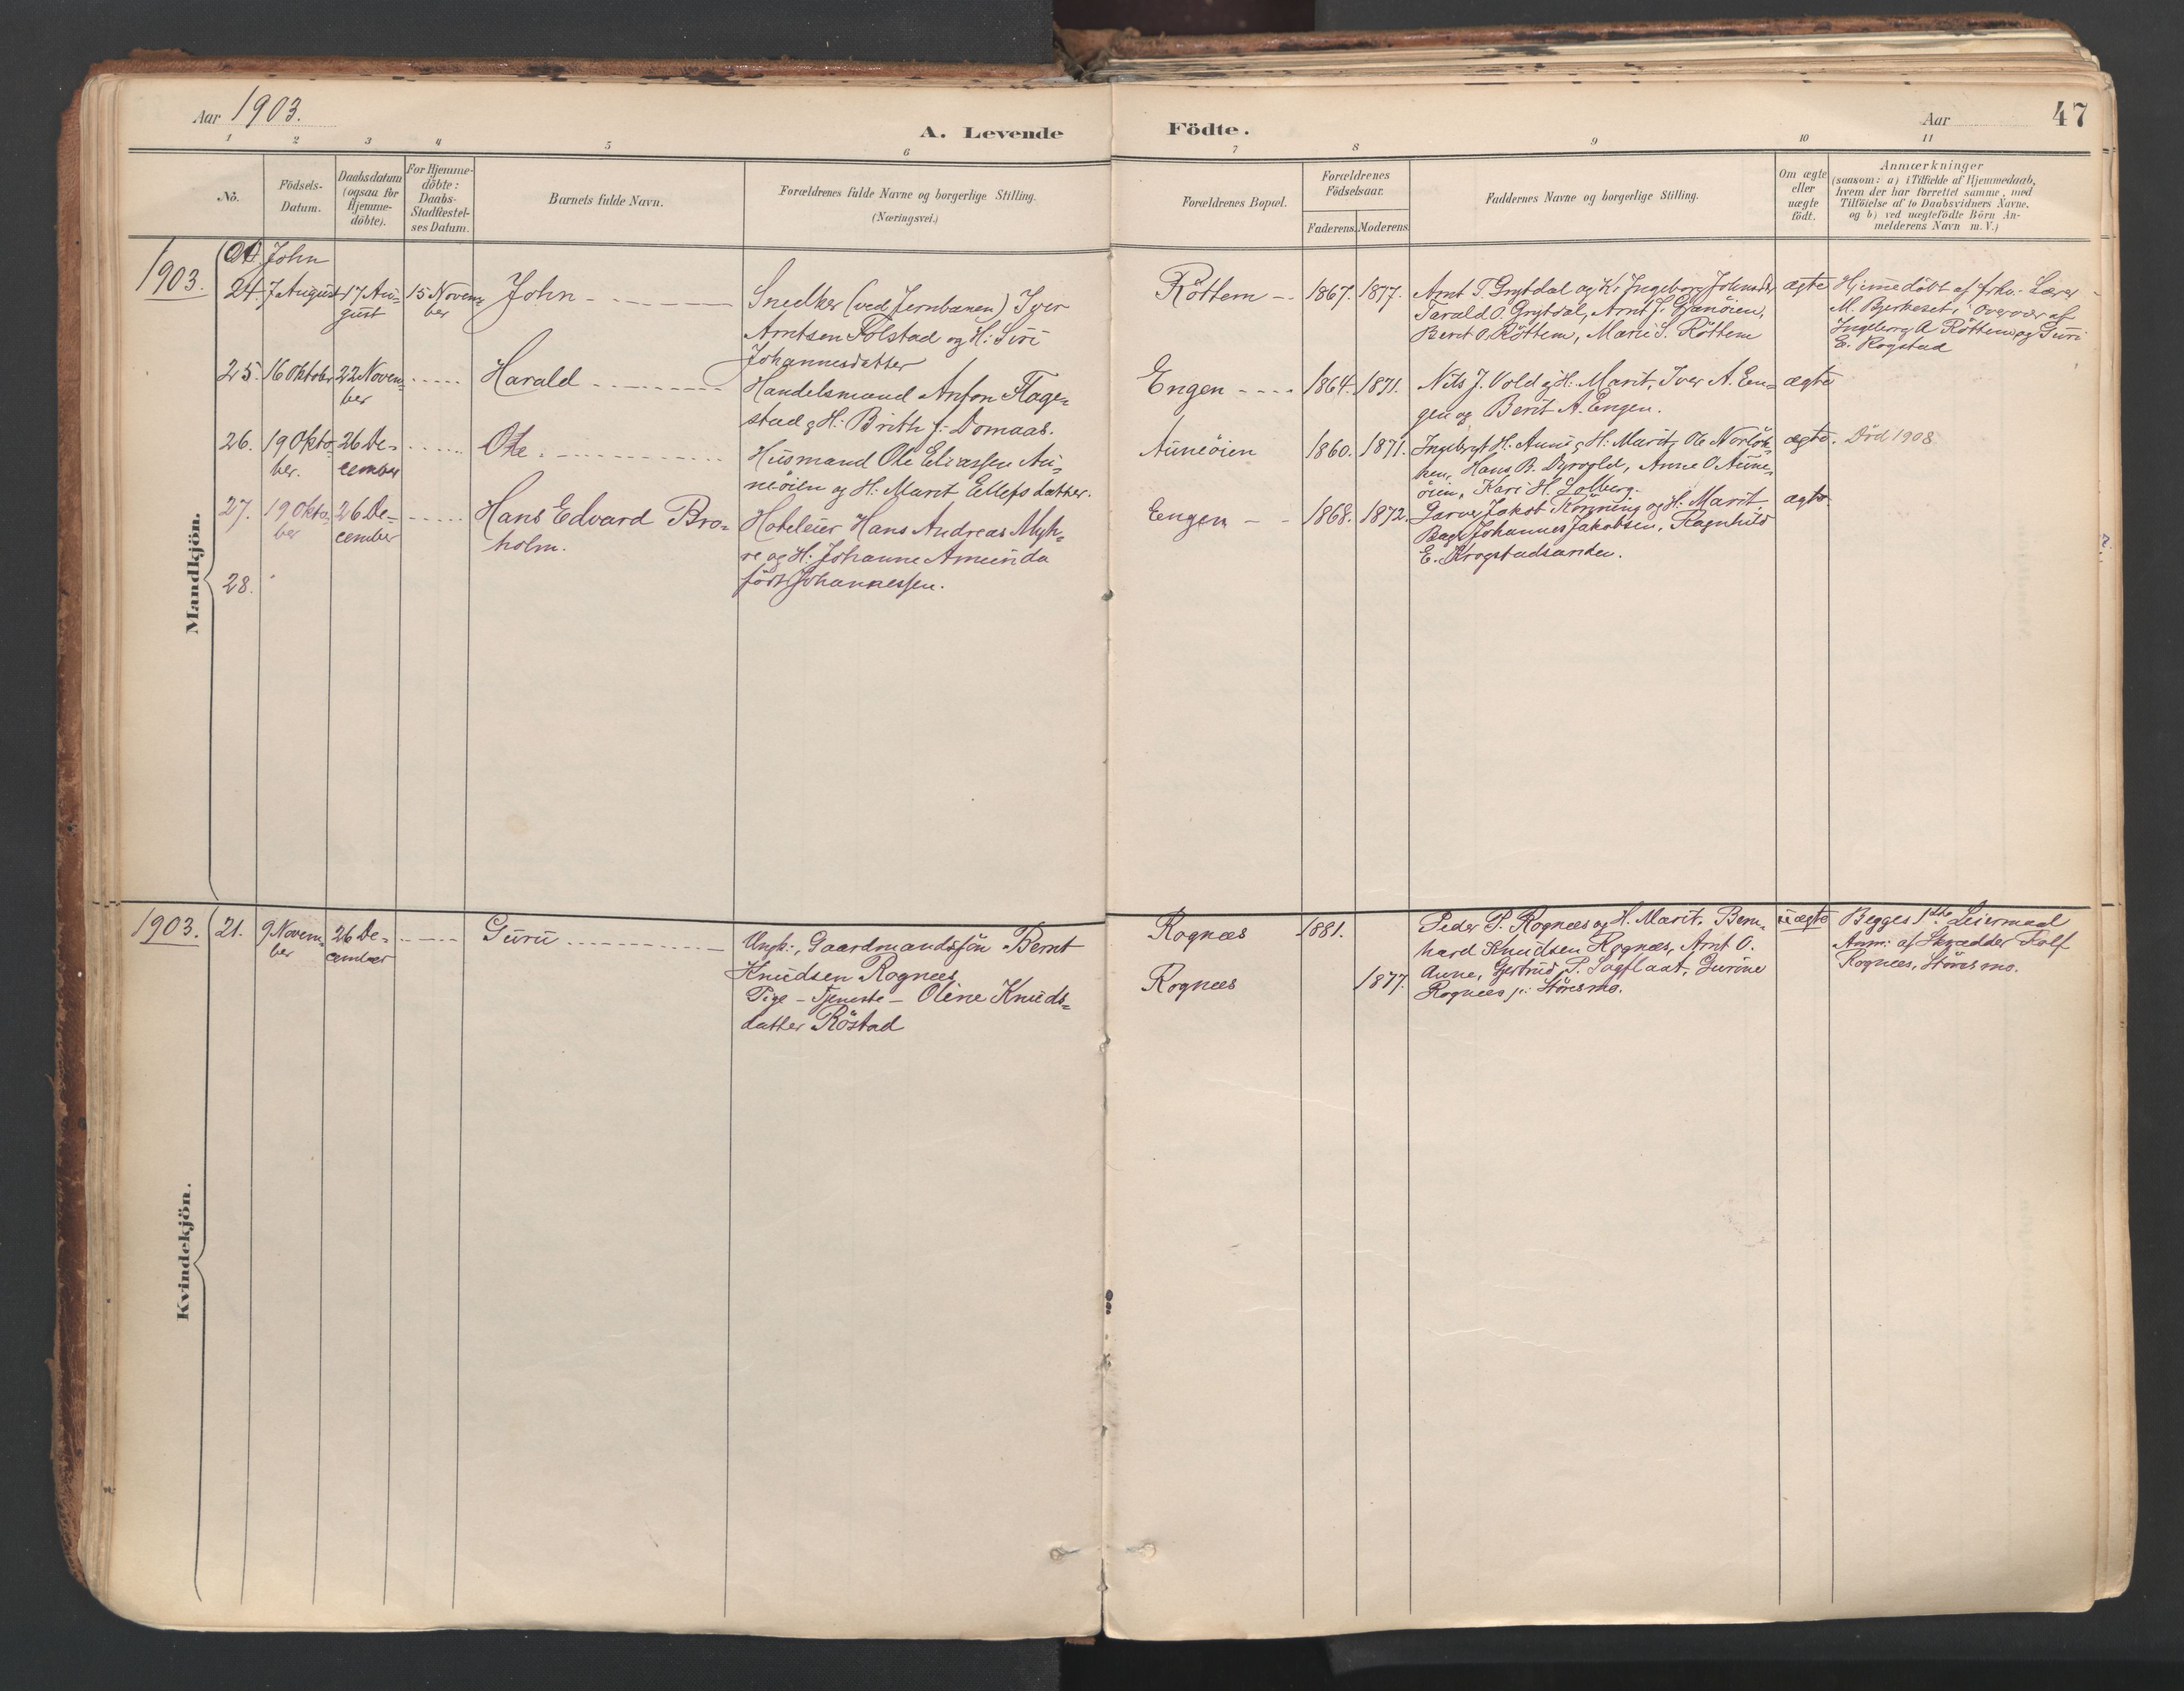 Aar 1903.
A. Levende Födte.
Aar
47
1 2 3 4 5 6 7 8 9 10 11
No.
Födsels-
Datum.
Daabsdatum
(ogsaa for
Hjemme-
döbte).
For Hjemme-
döbte:
Daabs-
Stadfæstel-
ses Datum.
Barnets fulde Navn.
Forældrenes fulde Navne og borgerlige Stilling.
(Næringsvei.)
Forældrenes Bopæl.
Forældrenes
Födselsaar.
Faderens.
Moderens.
Faddernes Navne og borgerlige Stilling.
Om ægte
eller
uægte
födt.
Anmærkninger
(saasom: a) i Tilfælde af Hjemmedaab,
hvem der har forrettet samme, med
Tilföielse af to Daabsvidners Navne,
og b) ved uægtefödte Börn An-
melderens Navn m. V.)
Mandkjön.
1903.
John
24. 7 August 17 Au-
gust
15 Novem-
ber
John
Snedker (ved Jernbanen) Iver
Arntsen Folstad og H: Siri
Johannesdatter
Röttem
1867. 1877.
Arnt T. Grytdal og K: Ingeborg Johnsdr
Tarald O. Grytdal, Arnt J. Granöien,
Berit O. Röttem, Marie S. Röttem
ægte
Hjemmedöbt af frhv. Lærer
M. Bjerkeset, i Overvær af
Ingeborg A. Röttem og Guri
E. Rogstad
25. 16 Oktober 22 Novem-
ber
Harald
Handelsmand Anton Flage-
stad og H: Brith f: Domaas.
Engen
1864. 1871.
Nils J. Vold og H: Marit, Iver A. En-
gen og Berit A. Engen.
ægte
26. 19 Okto-
ber.
26 De-
cember
Ole
Husmand Ole Eliassen Au-
neöien og H: Marit Ellefsdatter.
Auneöien
1860. 1871.
Ingebrigt H. Aune og H: Marit, Ole
Hans B. Dyrvold, Anne O. Aune-
öien, Kari H. Solberg.
ægte.
Död 1908.
27. 19 Okto-
ber
26 De-
cember
Hans Edvard Bro-
holm.
Hoteleier Hans Andreas Myh-
re og H: Johanne Amunda
födt Johannessen.
Engen
1868. 1872.
Garver Jakob Rönning og H: Marit,
Bager Johannes Jakobsen, Ragnhild
E. Krogstadsanden.
ægte.
28.
Kvindekjön.
1903. 21. 9 Novem-
ber
26 De-
cember
Guru
Ungk:, Gaardmandssön Bernt
Knudsen Rognæs
Pige - Tjeneste - Oline Knuds-
datter Röstad
Rognæs
1881.
Rognæs
1877.
Peder P. Rognæs og H. Marit, Bern-
hard Knudsen Rognæs, Arnt O.
Aune, Gjertrud P. Sagflaat, Gurine
Rognæs p: Störesmo.
uægte
Begges 1ste Leiermaal
Anm: af Skrædder Rolf
Rognæs, Störesmo.